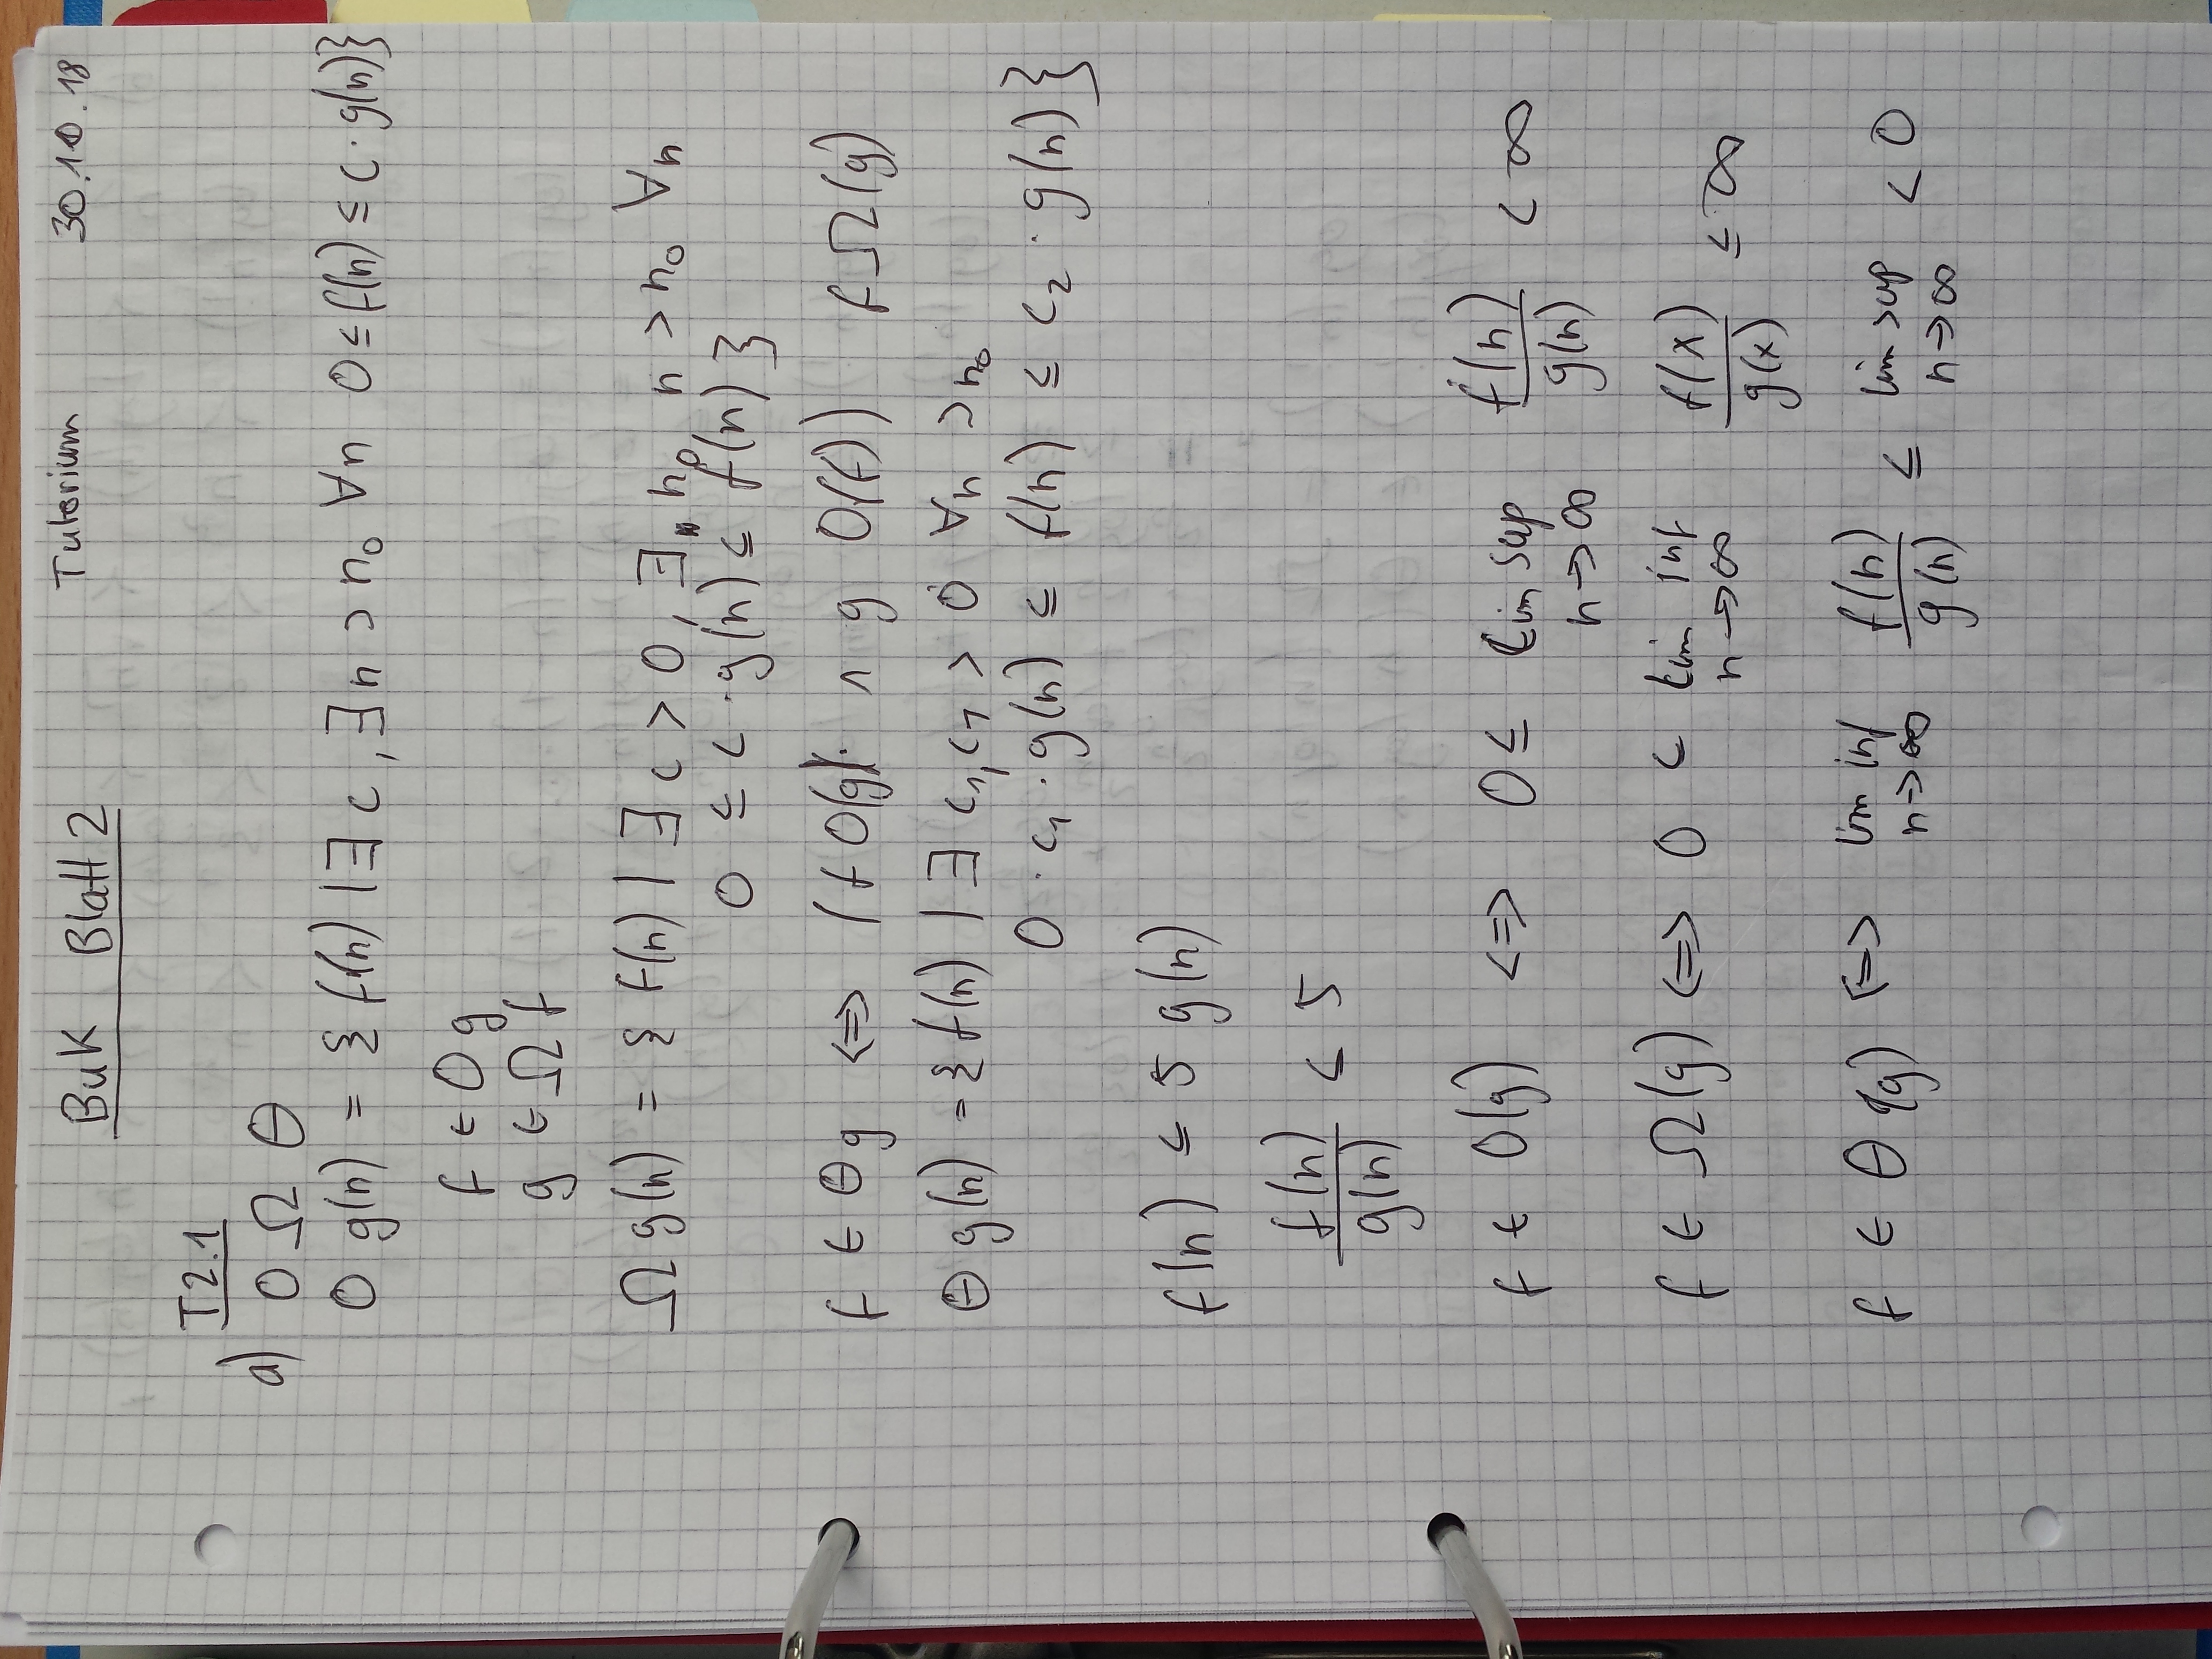 BuK Blatt 2 Tutorium 30.10.18
T2.1
a) O Ω Θ
O g(n) = { f(n) | ∃ c, ∃ n > n₀ ∀n 0 ≤ f(n) ≤ c · g(n)}
f ∈ O g
g ∈ Ω f
Ω g(n) = { f(n) | ∃ c > 0, ∃ n₀ n > n₀ ∀n
0 ≤ c · g(n) ≤ f(n) }
f ∈ Θ g ⇔ (f O(g) ∧ g O(f)) f Ω(g)
Θ g(n) = { f(n) | ∃ c₁, c₁ > 0 ∀n > n₀
0 · c₁ · g(n) ≤ f(n) ≤ c₂ · g(n) }
f(n) ≤ 5 g(n)
f(n)/g(n) ≤ 5
f ∈ O(g) ⇔ 0 ≤ lim sup n→∞ f(n)/g(n) < ∞
f ∈ Ω(g) ⇔ 0 < lim inf n→∞ f(x)/g(x) ≤ ∞
f ∈ Θ(g) ⇔ lim inf n→∞ f(n)/g(n) ≤ lim sup n→∞ < 0